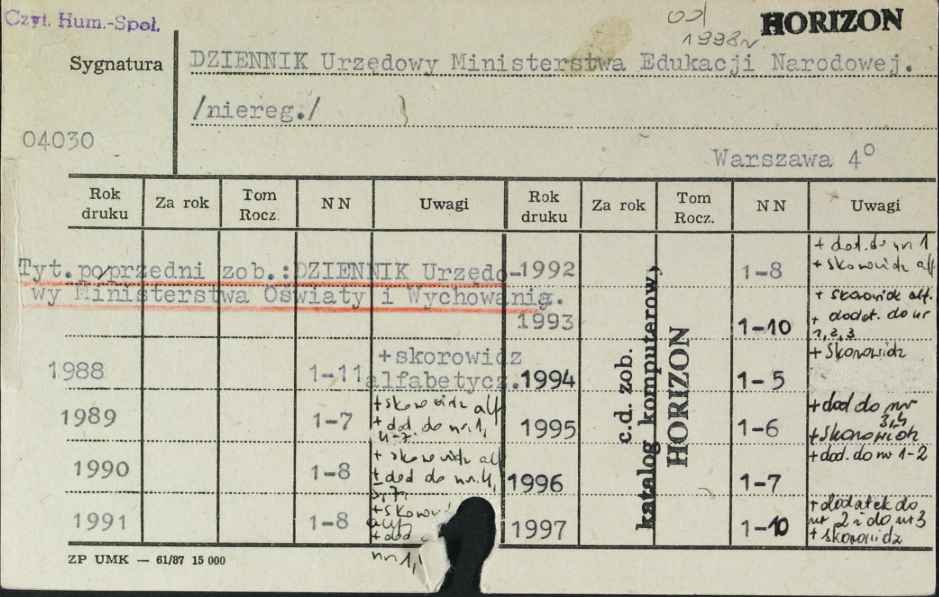 Czyt. Hum.-Społ.
od
1998 r
HORIZON
Sygnatura
DZIENNIK Urzędowy Ministerstwa Edukacji Narodowej.
/niereg./
04030
Warszawa 4°
Rok druku Za rok Tom Rocz. NN Uwagi Rok druku Za rok Tom Rocz. NN Uwagi
Tyt. poprzedni zob.: DZIENNIK Urzędo-
wy Ministerstwa Oświaty i Wychowania.
1988 1-11 +skorowidz
alfabetycz.
1989 1-7 +skorowidz alf
+dod. do nr. 1,
4-7.
1990 1-8 +skorowidz alf
+dod do nr.
1991 1-8 +skorow
alf
+dod
nr 1,
1992 1-8 + dod. do nr 1
+ skorowidz alf
1993 1-10 + skorowidz alf.
+ dodat. do nr
1, 2, 3
1994 1-5 + Skorowidz
1995 1-6 + dod do nr
3,4
+ Skorowidz
1996 1-7 + dod. do nr 1-2
1997 1-10 + dodatek do
nr 2 i do nr 3
+ skorowidz
c.d. zob.
katalog komputerowy
HORIZON
ZP UMK — 61/87 15 000